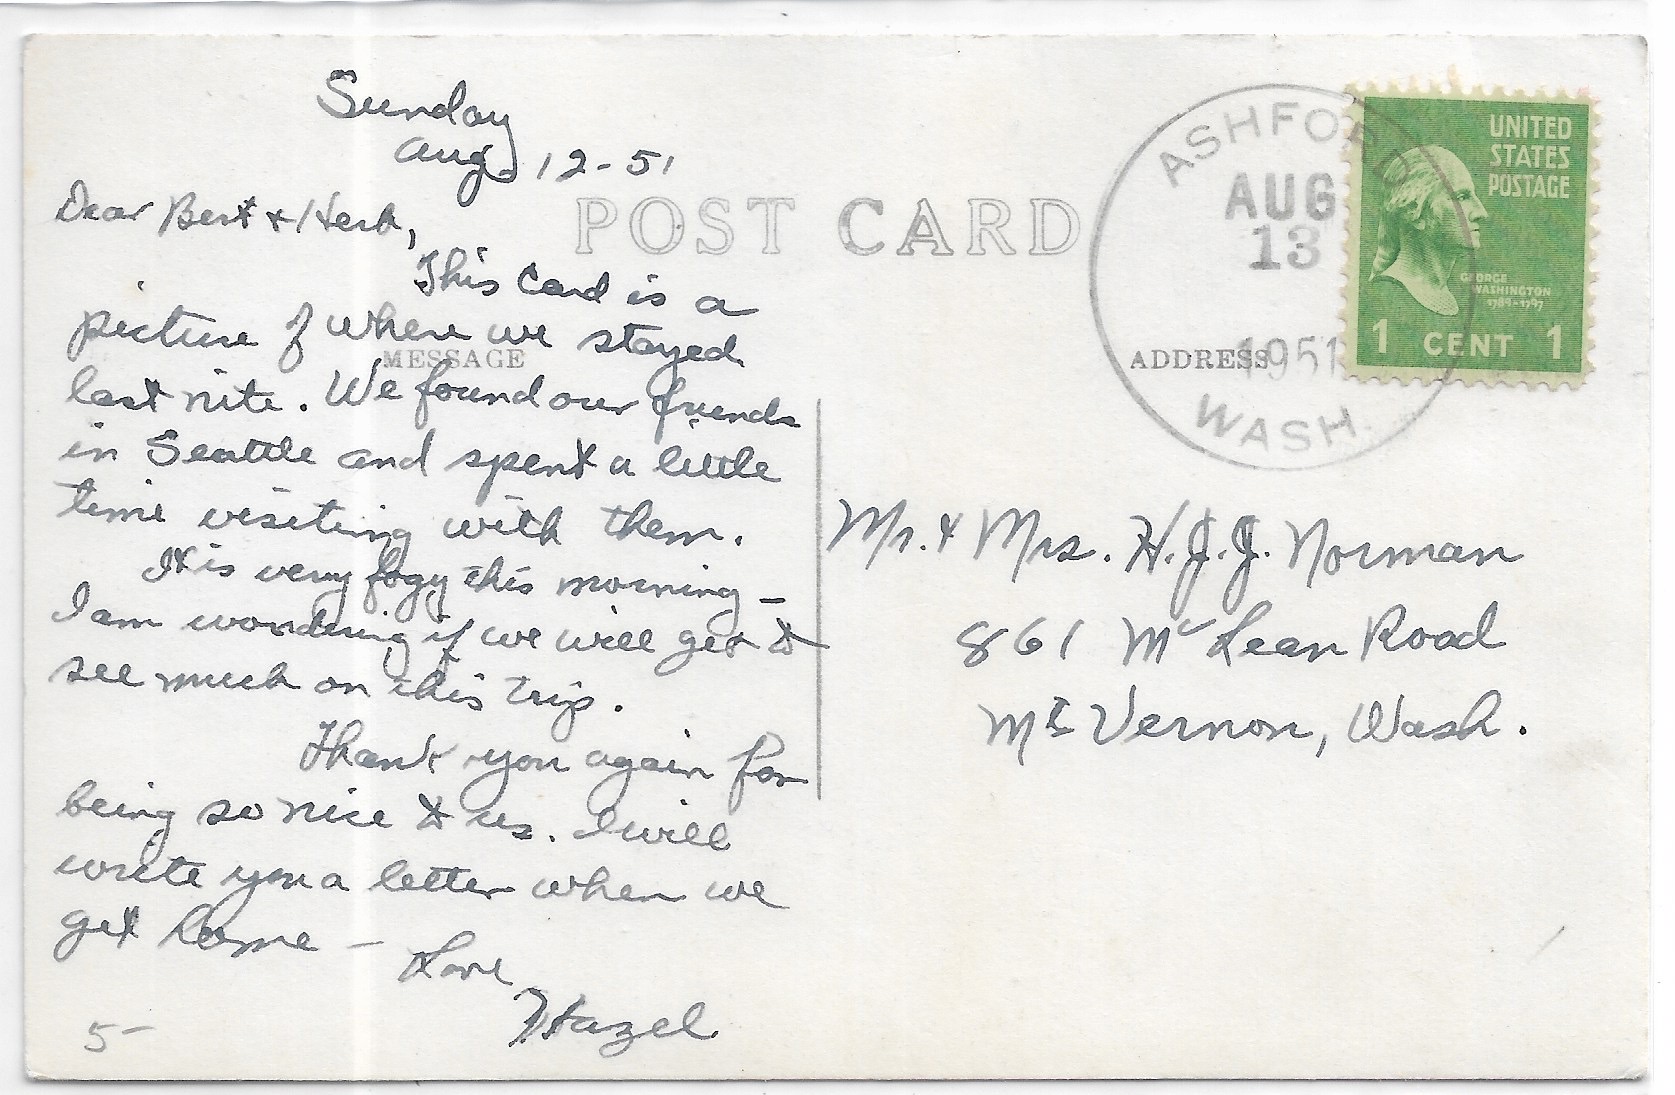 Sunday
Aug 12-51
Dear Bert & Herb,
This card is a
picture of where we stayed
last nite. We found our friends
in Seattle and spent a little
time visiting with them.
It is very fogy this morning –
I am wondering if we will get to
see much on this trip.
Thank you again for
being so nice to us. I will
write you a letter when we
get home –
Love
Hazel
5-
POST CARD
MESSAGE
ADDRESS
ASHFORD
AUG
13
1951
WASH.
UNITED
STATES
POSTAGE
GEORGE
WASHINGTON
1789-1797
1 CENT 1
Mr. & Mrs. H. J. J. Norman
861 Mc Lean Road
Mt Vernon, Wash.